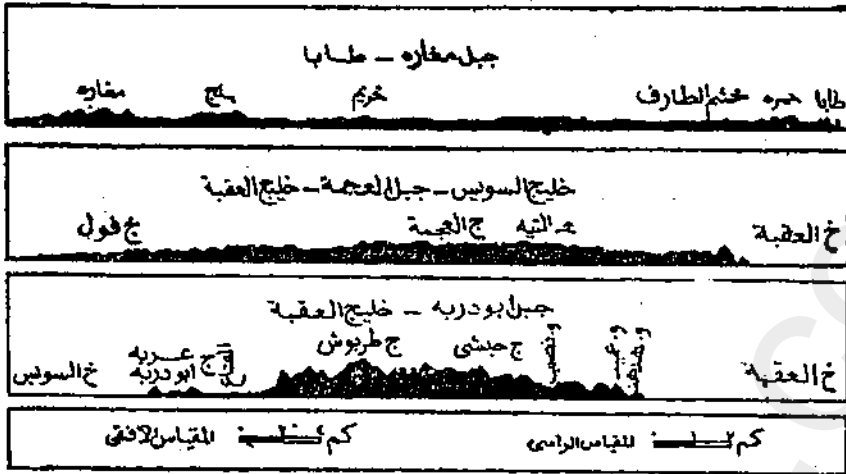 جبل مغاره - طابا
طابا حمره مخشم الطارف خريم يلج مغاره
خليج السويس - جبل العجمة - خليج العقبة
خ العقبة هـ التيه ج العجمة ج فول
جبل ابو دربه - خليج العقبة
خ العقبة و نصب ج حبشى ج طربوش ج عربه ابو دربه خ السويس
كم المقياس الراسى كم المقياس الافقى